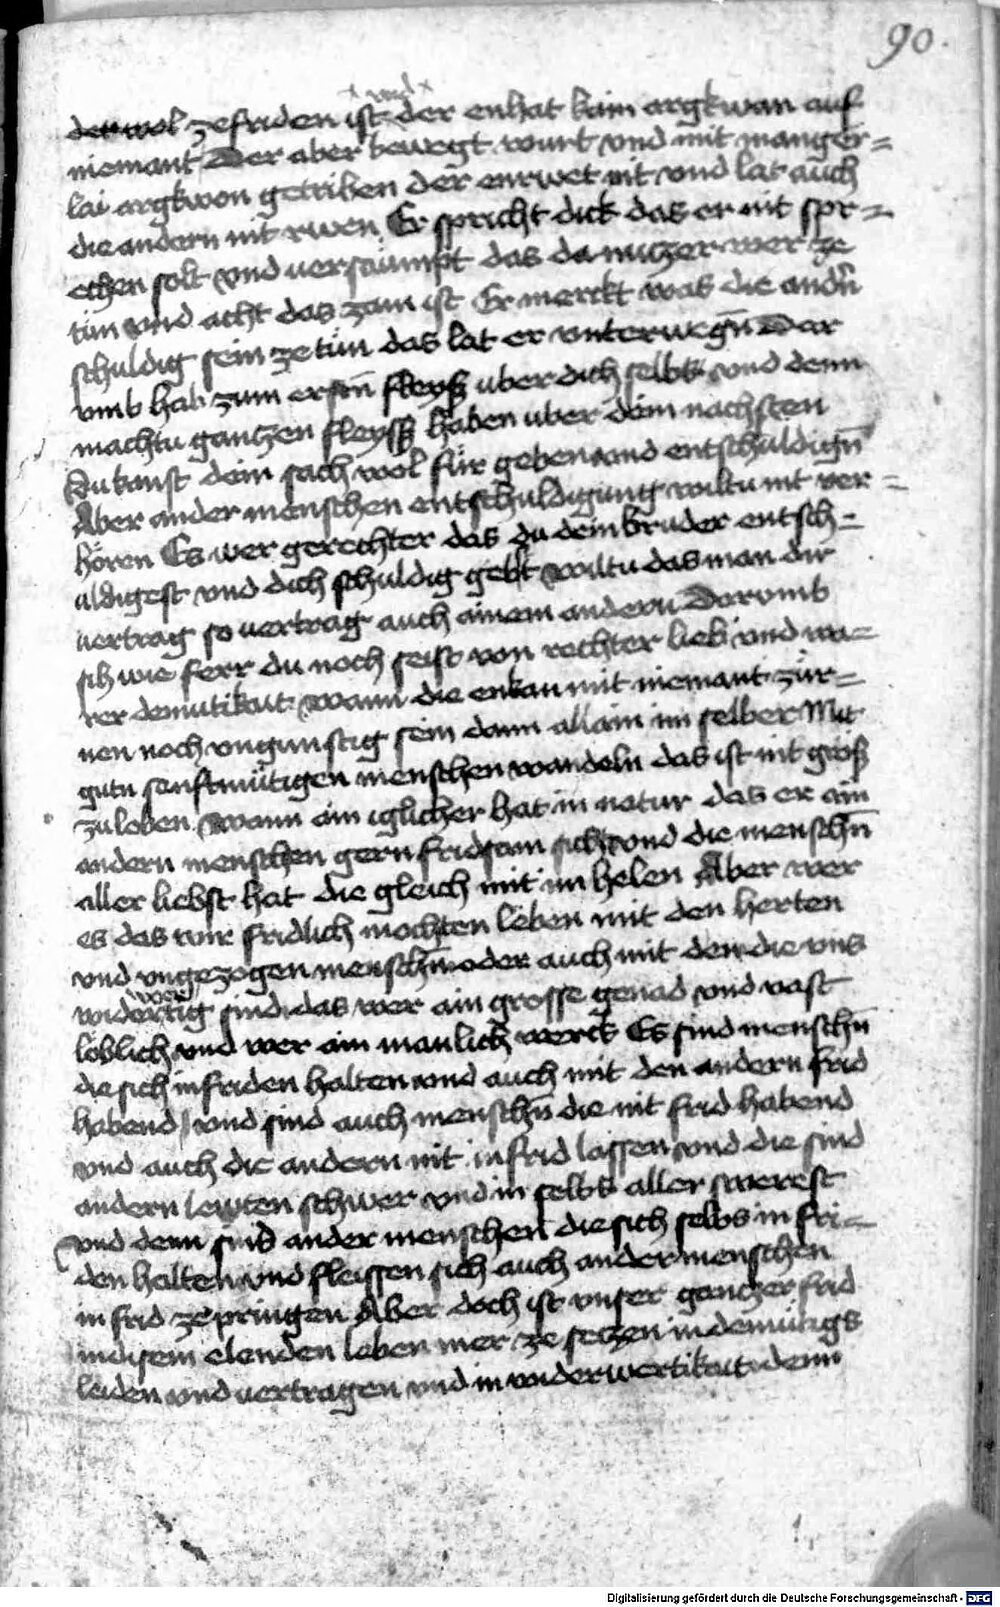 90.
vnd
der wol zefriden ist der enhat kain argkwan auf
niemant Der aber bewegt wurt vnd mit manger=
lai argkwon getriben der enrwet nit vnd lat auch
die andern nit rwen Er spricht dick das er nit spr=
echen solt vnd versaumpt das da nutzer wer ze
tun vnd acht das zam ist Er merckt was die andn̄
schuldig sein ze tun das lat er vnterwegn̄ Dar
vmb hab zum erstn̄ fleyß uber dich selbs vnd denn
machtu gantzen fleyss haben uber dein nachsten
Du kanst dein sach wol für geben vnd entschuldign̄
Aber ander menschen entschuldigung wiltu nit ver=
hören Es wer gerechter das du dein bruder entsch=
uldigest vnd dich schuldig gebst wiltu das man dir
vertrag so vertrag auch ainem andern Dorumb
sih wie ferr du noch seist von rechter lieb vnd wa=
rer demutikait wann die enkan mit niemant zür=
nen noch vngunstig sein dann allain im selber Mit
gutn senftmütigen menschen wandeln das ist nit groß
zu loben wann ain iglicher hat in natur das er ain
andern menschen gern fridsam sicht vnd die menschn̄
aller liebst hat die gleich mit im helen Aber wer
es das wir fridlich mochten leben mit den herten
vnd vngezogen menschn̄ oder auch mit den die vns
wer
widertig sind das wer ain grosse genad vnd vast
löblich vnd wer ain manlich werck Es sind menschn̄
die sich in friden halten vnd auch mit den andern frid
habend vnd sind auch menschn̄ die nit frid habend
vnd auch die andern nit in frid lassen vnd die sind
andern lewten schwer vnd in selbs aller swerest
vnd denn sind ander menschen die sich selbs in fri=
den halten vnd fleissen sich auch ander menschen
in frid ze pringen Aber doch ist vnser gantzer frid
in disem elenden leben mer ze setzen in demütigs
leiden vnd vertragen vnd in widerwertikait denn
Digitalisierung gefördert durch die Deutsche Forschungsgemeinschaft - DFG